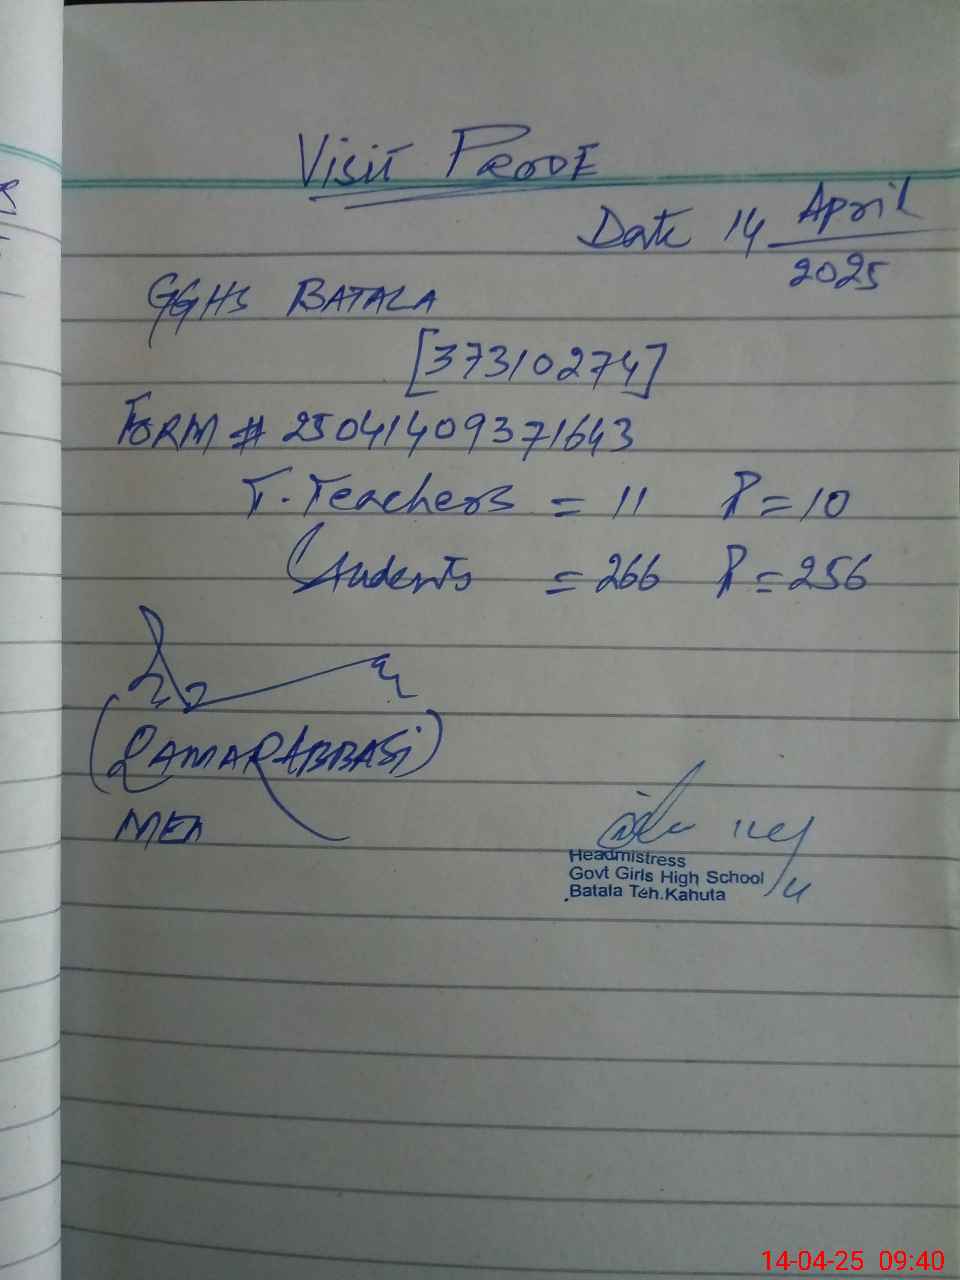 Visit Proof
Date 14 April
2025
GGHS BATALA
[37310274]
FORM # 25041409371643
T. Teachers = 11 P = 10
Students = 266 P = 256
(QAMAR ABBASi)
MEA
Headmistress
Govt Girls High School
Batala Teh.Kahuta
14-04-25 09:40